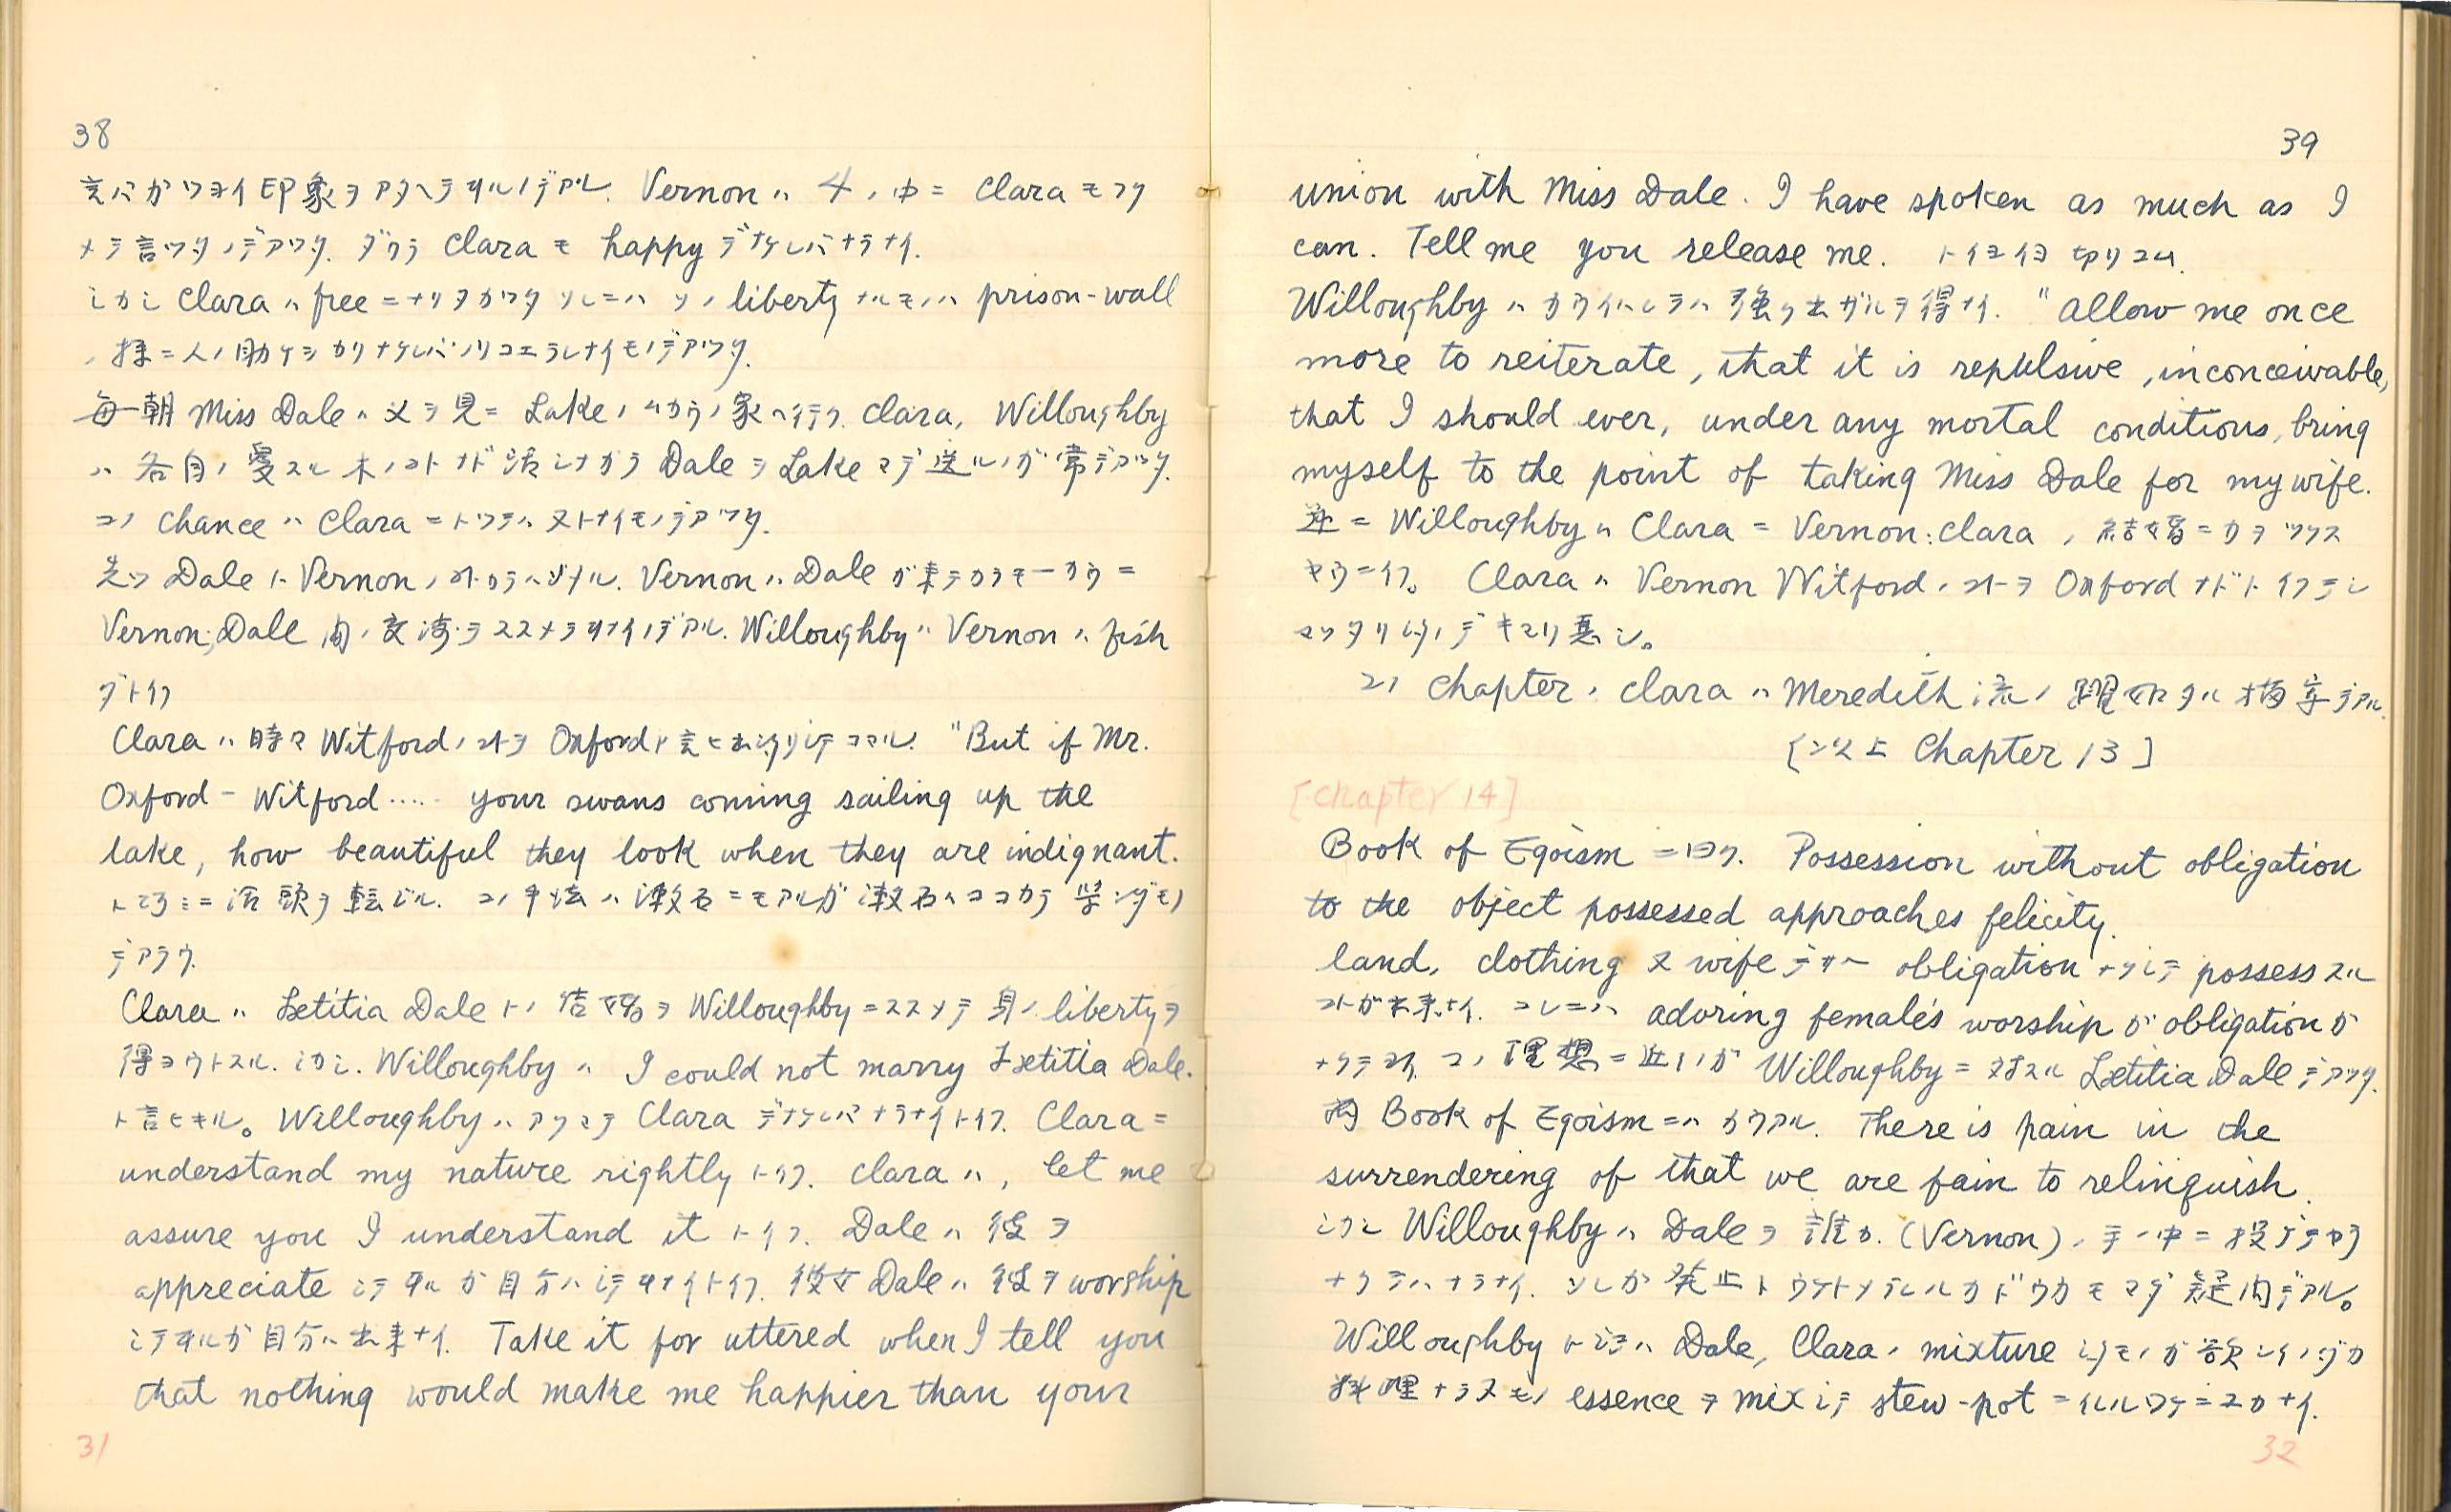 38
言バガツヨイ印象ヲアタヘテヰルノデアル. Vernon ハ 4ノ中ニ Claraモフク
メテ言ツタノデアツタ. ダカラ Clara モ happy デナケレバナラナイ.
シカシ Clara ハ free ニナリタカツタ ソレニハ ソノ liberty ナルモノハ prison-wall
ノ様ニ人ノ助ケヲカリナケレバノリコエラレナイモノデアツタ.
毎朝 Miss Dale ハ父ヲ見ニ Lakeノムカウノ家ヘ行ク. Clara, Willoughby
ハ各自ノ愛スル木ノコトナド話シナガラ Dale ヲ Lake マデ送ルノガ常デアツタ.
コノ chance ハ Clara ニトツテハ
先ヅ Dale ト Vernonノコトカラハジメル. Vernon ハ Dale ガ来テカラモ
Vernon; Dale 間ノ交渉ヲススメテヰナイノデアル. Willoughby ハ Vernon ハ fish
ダトイフ
Clara ハ時々 Witfordノコトヲ Oxfordト言ヒ出シタリシテコマル. "But if Mr.
Oxford - Witford ..... your swans coming sailing up the
lake, how beautiful they look when they are indignant.
ト巧ミニ話頭ヲ転ジル. コノ手法ハ漱石ニモアルガ漱石ハココカラ学ンダモノ
デアラウ.
Clara ハ Lætitia Dale トノ結婚ヲ Willoughby ニススメテ身ノ liberty ヲ
得ヨウトスル. シカシ. Willoughby ハ I could not marry Lætitia Dale.
ト言ヒキル。Willoughby ハアクマデ Clara デナケレバナラナイトイフ. Clara ニ
understand my nature rightly トイフ. Clara ハ, let me
assure you I understand it トイフ. Dale ハ彼ヲ
appreciate シテヰルガ自分ハシテヰナイトイフ. 彼女 Dale ハ彼ヲ worship
シテヰルガ自分ハ出来ナイ. Take it for uttered when I tell you
that nothing would make me happier than your
31
39
union with Miss Dale. I have spoken as much as I
can. Tell me you release me. トイヨイヨ切リコム.
Willoughby ハカウイハレテハ強ク出ザルヲ得ナイ. "Allow me once
more to reiterate, that it is repulsive, inconceivable,
that I should ever, under any mortal conditions, bring
myself to the point of taking Miss Dale for my wife.
逆ニ Willoughby ハ Clara ニ Vernon: Clara ノ結婚ニカヲツクス
ヤウニイフ。Clara ハ Vernon Witfordノコトヲ Oxford ナドトイツテシ
マツタリシタノデキマリ悪シ。
コノ chapterノ Clara ハ Meredith 流ノ躍如タル描写デアル.
[以上 Chapter 13]
[chapter 14]
Book of Egoism ニ曰ク. Possession without obligation
to the object possessed approaches felicity.
land, clothing 又 wife デサヘ obligation ナクシテ possess スル
コトガ出来ナイ. コレニハ adoring female's worship ガ obligation ガ
ナクテヨイ. コノ理想ニ近イノガ Willoughby ニ対スル Lætitia Dale デアツタ.
尚 Book of Egoism ニハカウアル. There is pain in the
surrendering of that we are fain to relinquish.
シカシ Willoughby ハ Dale ヲ誰カ (Vernon)ノ手ノ中ニ投ゲテヤラ
ナクテハナラナイ. ソレガ トウケトメテクレルカドウカモマダ疑問デアル。
Willoughby トシテハ Dale, Claraノ mixture シタモノガ欲シイノダガ
料理ナラヌモノ essence ヲ mix シテ stew-pot ニイレルワケニユカナイ.
32